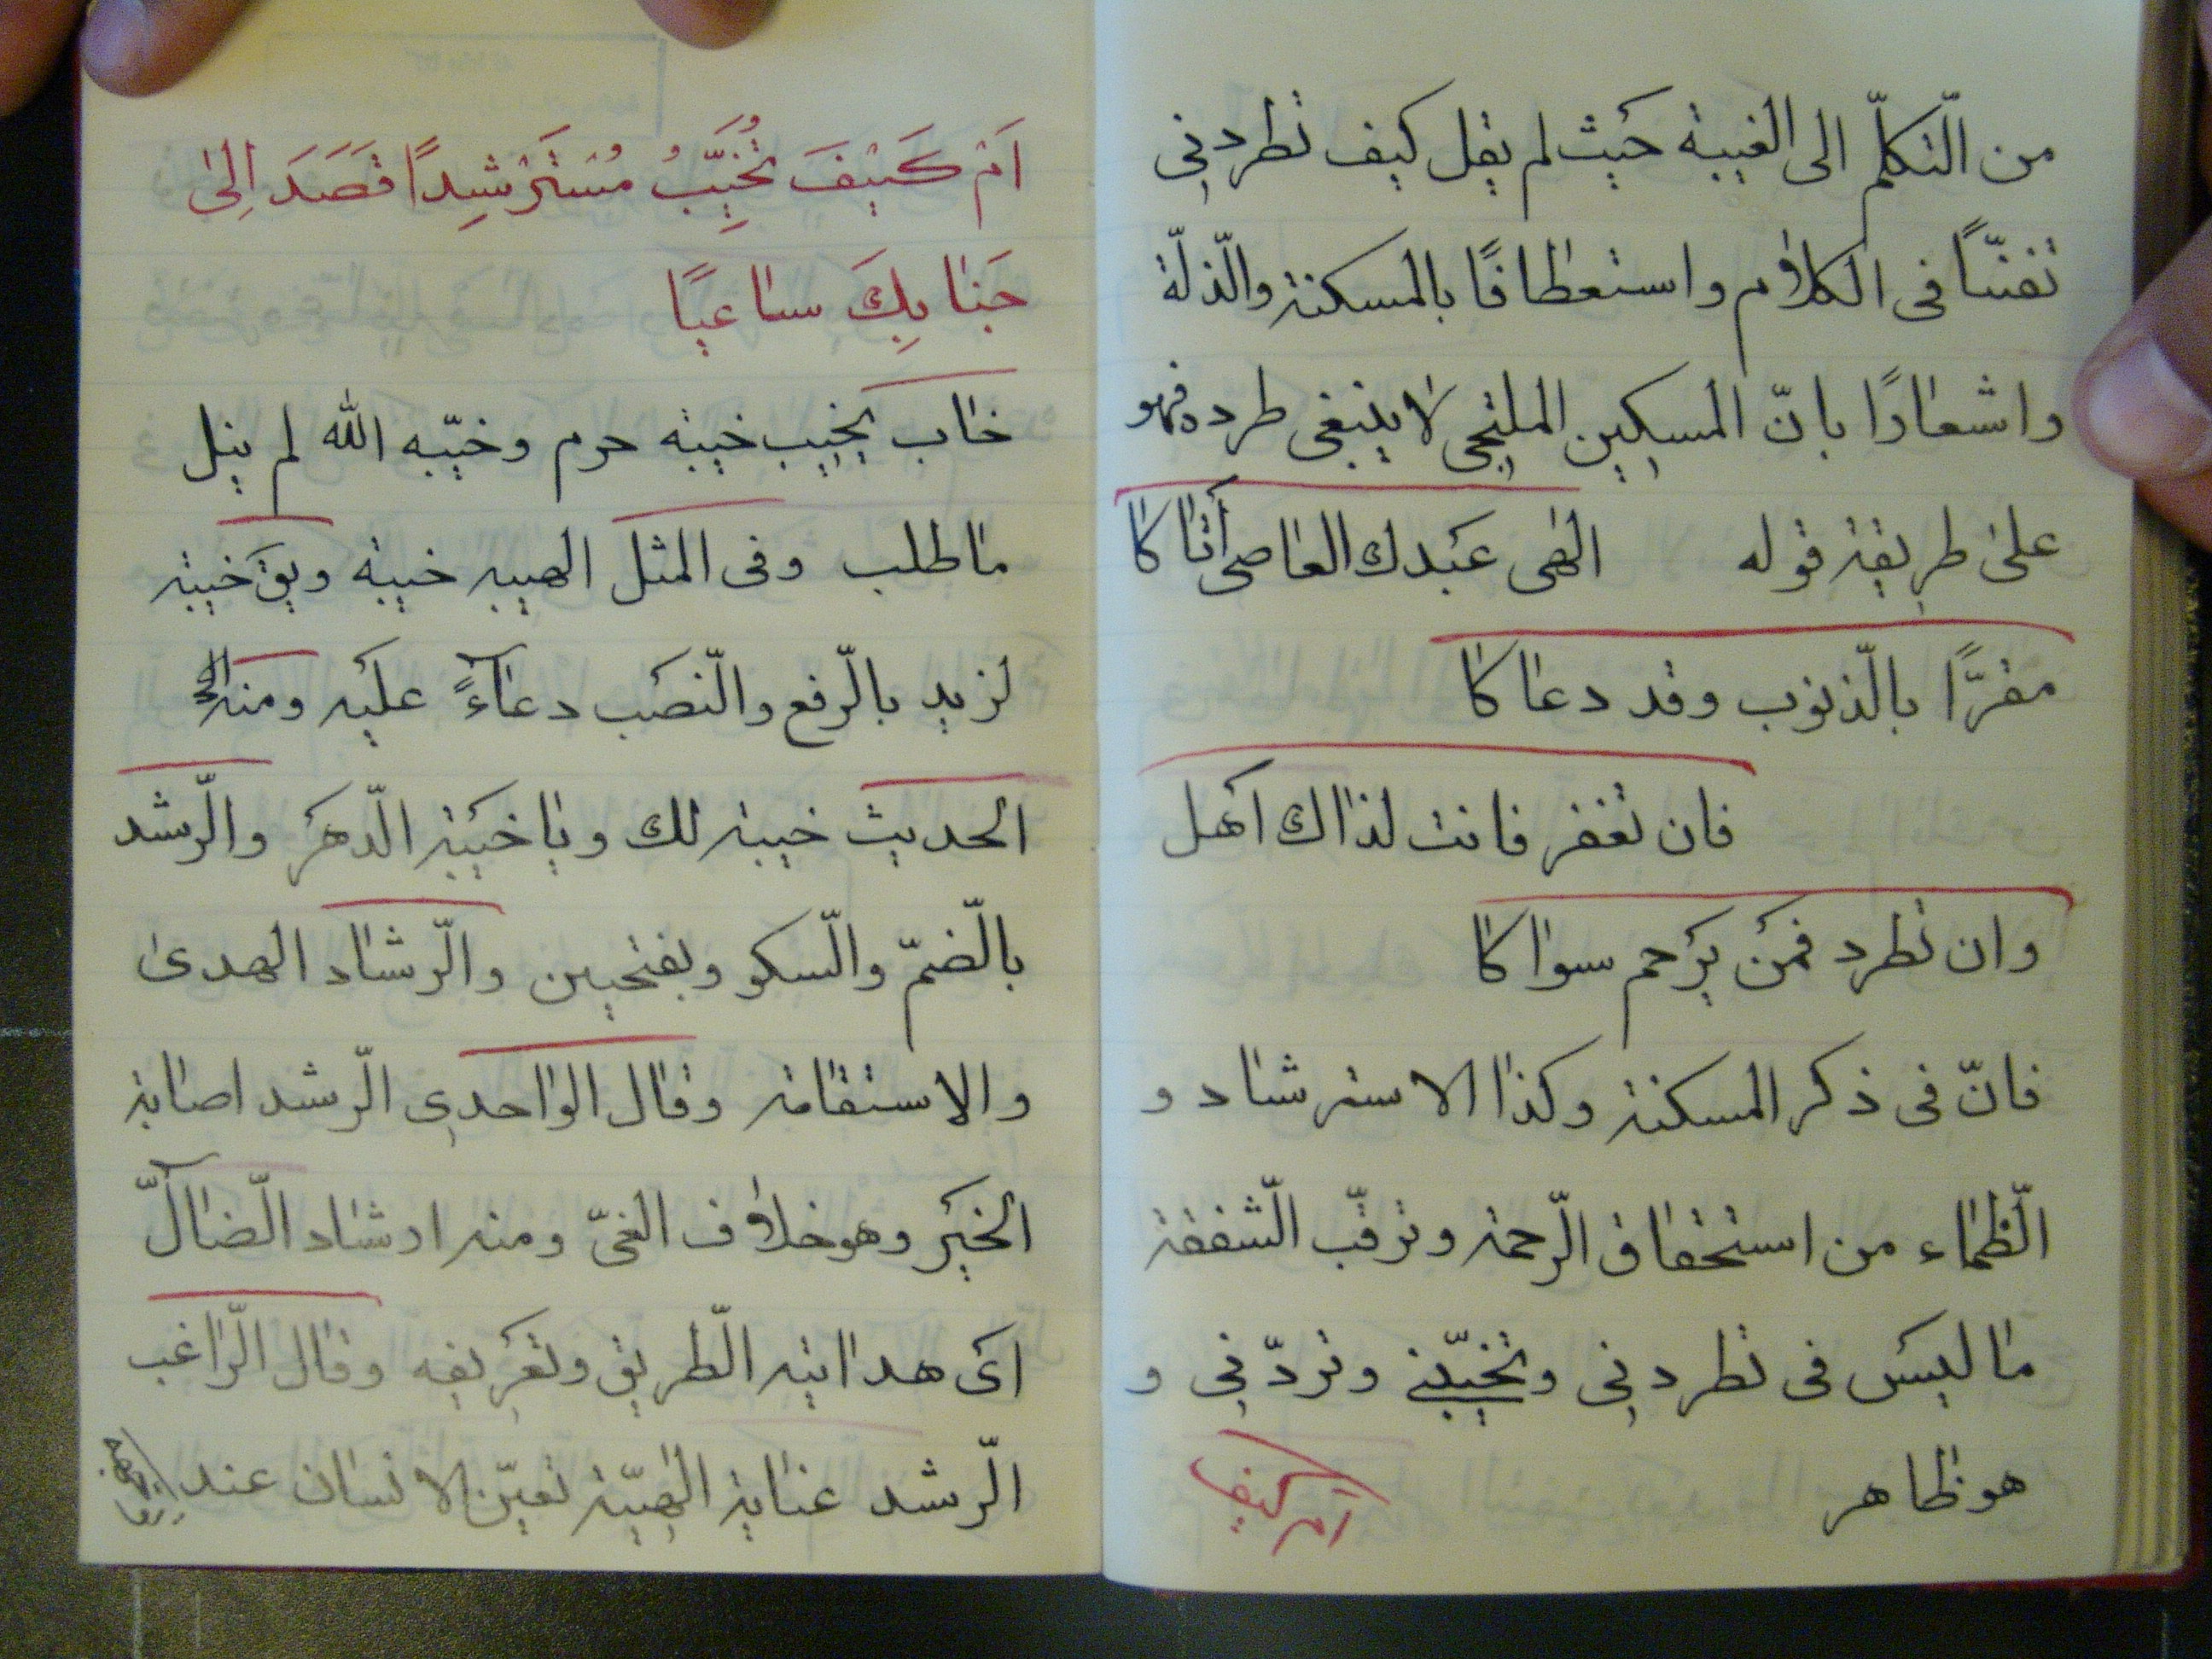 من التّكلّم الى الغيبة حيث لم يقل كيف تطردني
تفنّنًا فى الكلام واستعطافًا بالمسكنة والذّلّة
واشعارًا بانّ المسكين الملتجى لا ينبغى طرده فهو
على طريقة قوله الهى عبدك العاصى أتاكا
مقرًّا بالذّنوب وقد دعاكا
فان تغفر فانت لذاك اهل
وان تطرد فمن يرحم سواكا
فانّ فى ذكر المسكنة وكذا الاسترشاد و
الظّماء من استحقاق الرّحمة وترقّب الشّفقة
ما ليس فى تطردنى وتخيّبنى وتردّنى و
هو ظاهر
ام كيف
اَمْ كَيْفَ تُخَيِّبُ مُسْتَرْشِدًا قَصَدَ اِلىٰ
جَنابِكَ ساعيًا
خاب يخيب خيبة حرم وخيّبه الله لم ينل
ما طلب وفى المثل الهيبه خيبة ويقَ خيبة
لزيد بالرّفع والنّصب دعاءً عليه ومنه
الحديث خيبة لك ويا خيبة الدّهر والرّشد
بالضمّ والسّكو وبفتحيين والرّشاد الهدى
والاستقامة وقال الواحدي الرّشد اصابة
الخير وهو خلاف الغىّ ومنه ارشاد الضّالّ
اى هداية الطّريق وتعريفه وقال الرّاغب
الرّشد عناية الهيّة تعيّن الانسان عند